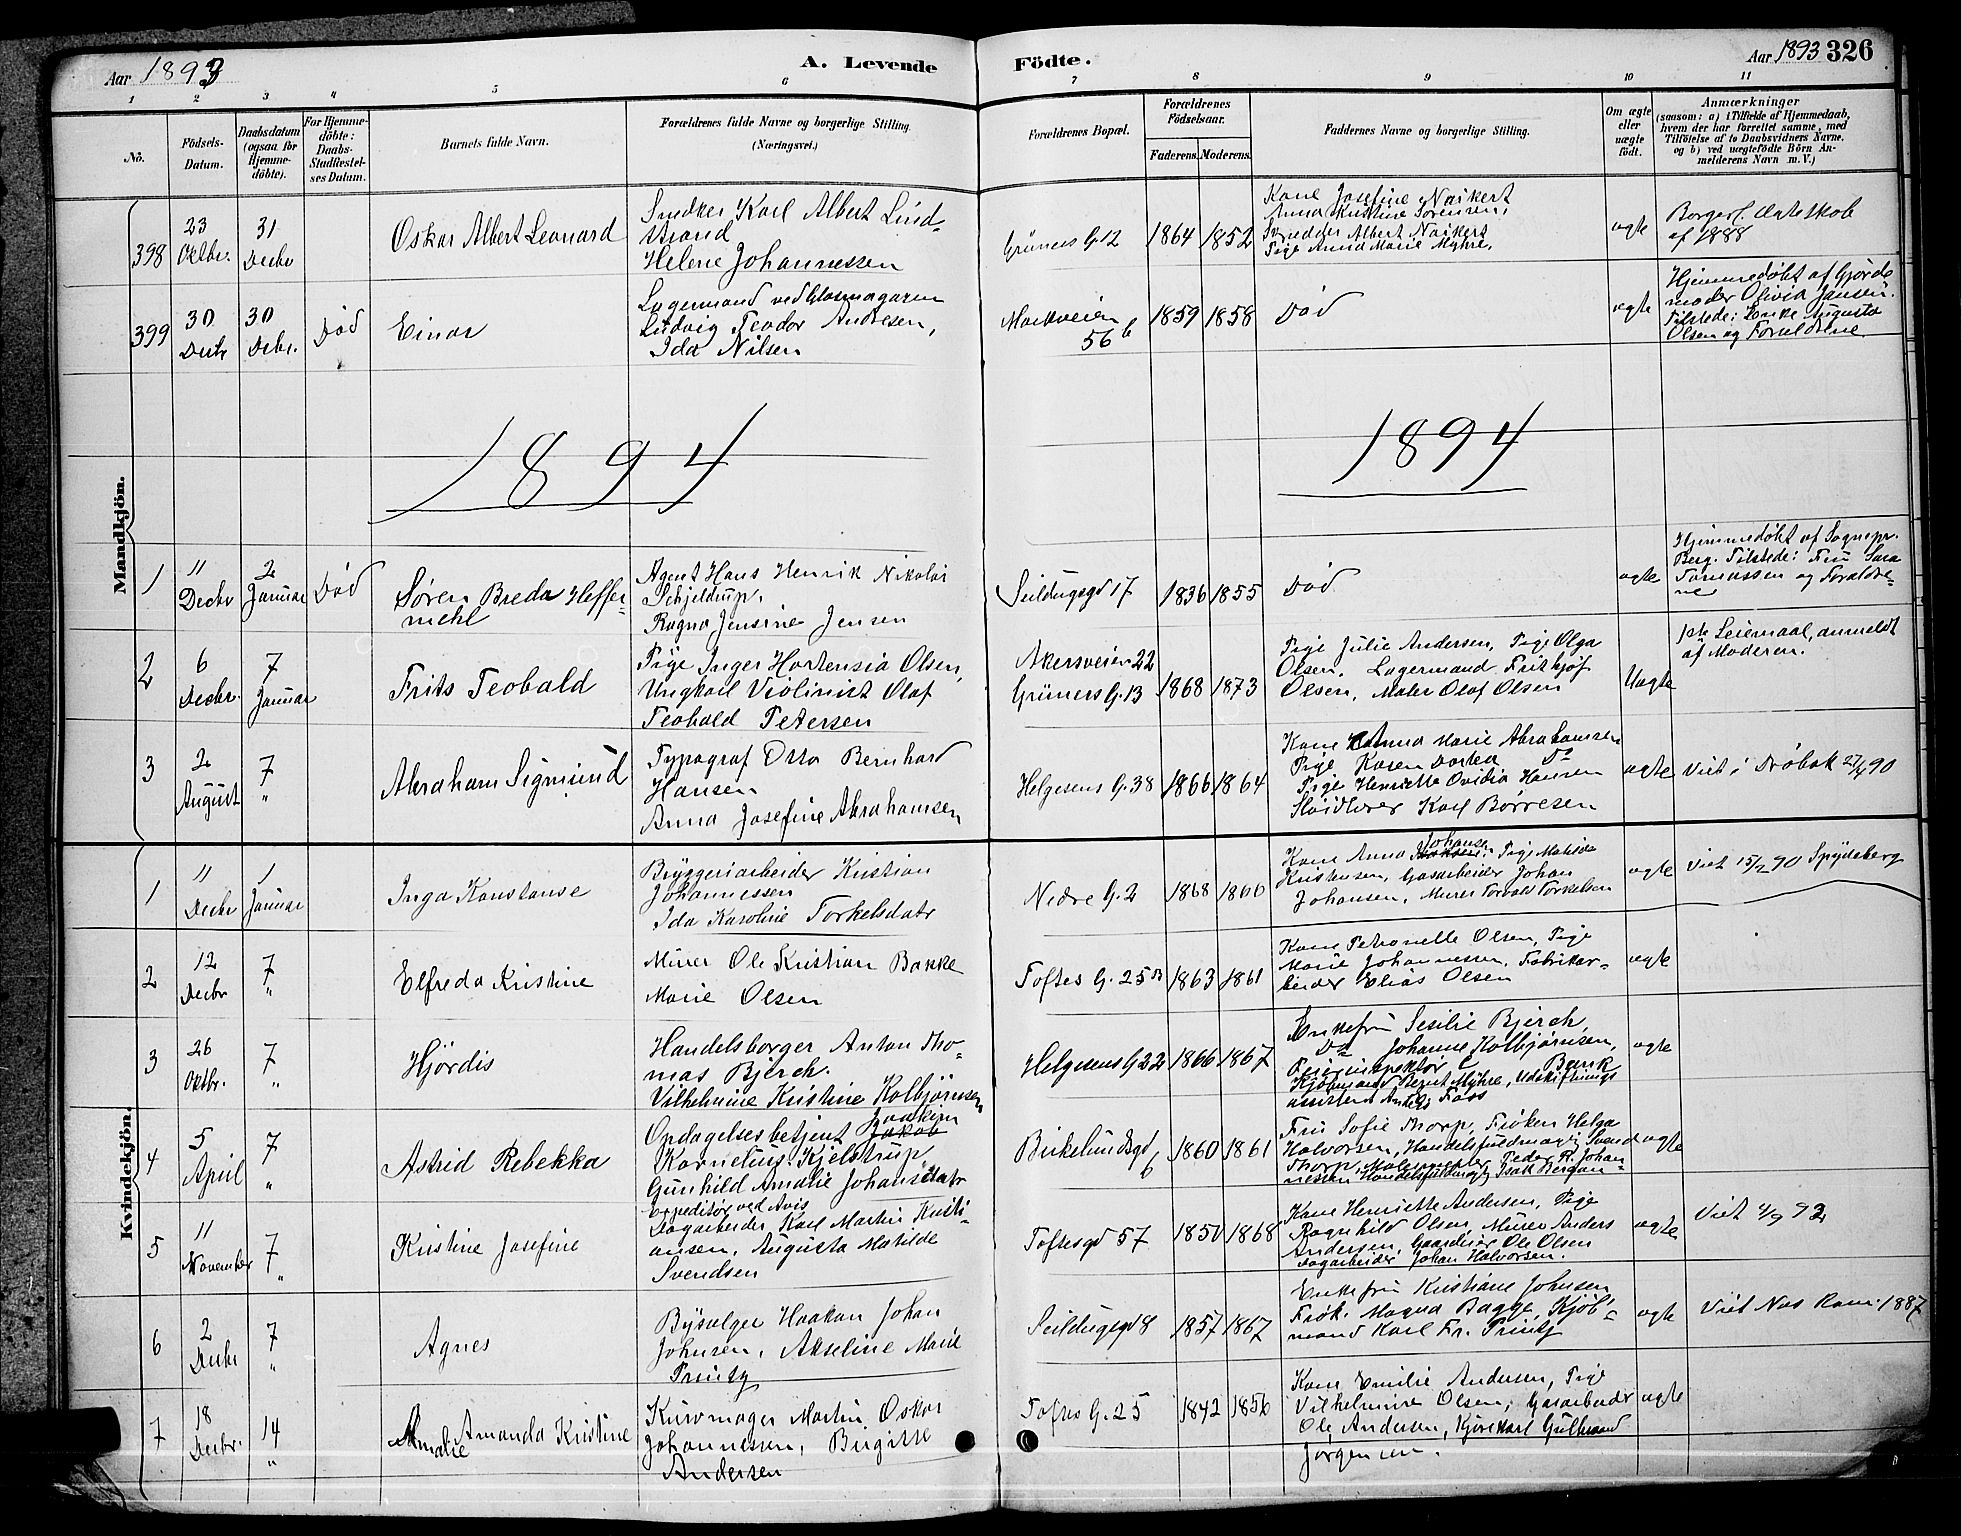 Aar 1893
A. Levende
Födte.
Aar 1893 326
1 2 3 4 5 6 7 8 9 10 11
No.
Födsels-
Datum.
Daabsdatum
(ogsaa for
Hjemme-
döbte).
For Hjemme-
döbte:
Daabs-
Stadfæstel-
ses Datum.
Barnets fulde Navn.
Forældrenes fulde Navne og borgerlige Stilling.
(Næringsvei.)
Forældrenes Bopæl.
Forældrenes
Födselsaar.
Faderens. Moderens.
Faddernes Navne og borgerlige Stilling.
Om ægte
eller
uægte
födt.
Anmærkninger
(saasom: a) i Tilfælde af Hjemmedaab,
hvem der har forrettet samme, med
Tilföielse af to Daabsvidners Navne.
og b) ved uægtefödte Börn An-
melderens Navn m. V.)
Mandkjön.
398
23
Oktbr.
31
Decbr
Oskar Albert Leonard
Snedker Karl Albert Lind-
strand
Helene Johannessen
Grüners G. 12
1864 1852
Kone Josefine Naikert
Anna Kristine Sørensen,
Svedder Albert Naikert
Pige Anna Marie Myhre.
ægte
Borgerl. Ægteskab
af 1888
399
30
Decbr
30
Decbr.
Død
Einar
Lagermand ved Glasmagaren
Ludvig Teodor Andresen,
Ida Nilsen
Markveien
56 b
1859 1858
Død
ægte
Hjemmedøbt af Gjorde
moder Olivia Jansen.
Tilstede: Enke Augusta
Olsen og Forældrene
1894
1894
1
11
Decbr
2
Januar
Død
Søren Breda Heffer-
mehl
Agent Hans Henrik Nikolai
Schjeldrup.
Ragna Jensine Jensen
Seildugsgd 17
1836 1855
Død
ægte
Hjemmedøbt af Sognepr.
Berg. Tilstede: Fru Sara
Tomassen og Forældre-
ne
2
6
Decbr.
7
Januar
Frits Teobald
Pige Inger Hortensia Olsen,
Ungkarl Violinist Olaf
Teobald Petersen
Akersveien 22
Grüners G. 13
1868 1873
Pige Julie Andersen, Pige Olga
Olsen, Lagermand Fritkjof
Olsen, Maler Olaf Olsen
Uægte
1ste Leiermaal, anmeldt
af Moderen.
3
2
August
7
"
Abraham Sigmund
Typograf Otto Bernhard
Hansen
Anna Josefine Abrahamsen
Helgesens G. 38
1866 1864
Kone Anna Marie Abrahamsen
Pige Karen Dortea Do
Pige Henriette Ovidia Hansen
Sløidlærer Karl Børresen
ægte
Viet i Drøbak 27/4 90
Kvindekjön.
1
11
Decbr
1
Januar
Inga Konstanse
Bryggeriarbeider Kristian
Johannessen
Ida Karoline Torkelsdatr
Nedre G. 2
1868 1866
Johansen
Kone Anna Pige Matilde
Kristensen, Gasarbeider Johan
Johansen, Murer Torvald Torkelsen
ægte
Viet 15/2 90 Spydeberg
2
12
Decbr
7
"
Elfreda Kristine
Murer Ole Kristian Bakke
Marie Olsen
Toftes G. 25 B
1863 1861
Kone Petronelle Olsen, Pige
Marie Johannessen, Fabrikar-
beider Elias Olsen
ægte
3
26
Oktbr.
7
"
Hjørdis
Handelsborger Anton Tho-
mas Bjerch.
Vilhelmine Kristine Kolbjørnsen
Helgesens G 22
1866 1867
Enkefru Sesilie Bjerch,
Do Johanne Kolbjørnsen,
Kjøbmand Bernt Myhre, Udskiftnings
assistent Foss
ægte
4
5
April
7
"
Astrid Rebekka
Joakim
Opdagelsesbetjent Jakob
Kornelius Kjelstrup,
Gunhild Amalie Johansdatr
Birkelundsgd
6
1860 1861
Fru Sofie Thorp, Frøken Helga
Halvorsen, Handelsfuldmægtig Svend
Thorp, Peder R. Johan-
nessen Handelsfuldmægtig Isak Bergan-
ægte
5
11
November
7
"
Kristine Josefine
Expeditør ved Avis
Dagarbeider Karl Martin Kristi-
ansen, Augusta Matilde
Svendsen
Toftesgd 57
1850 1868
Kone Henriette Andersen, Pige
Ragnhild Olsen, Murer Anders
Andersen, Gaardeier Ole Olsen
Dagarbeider Johan Halvorsen.
ægte
Viet 4/9 92
6
2
Decbr
7
"
Agnes
Bysælger Haakon Johan
Johnsen, Akseline Marie
Printz
Seildugsgd 8
1857 1867
Enkefru Kristiane Johnsen
Frøk. Magna Bagge, Kjøb-
mand Karl Fr. Printz
ægte
Viet Nos Kom. 1887
7
18
Decbr.
14
"
Amanda Kristine
Amalie
Kurvmager Martin Oskar
Johannessen, Birgitte
Andersen
Toftes G. 25
1842 1856
Kone Emilie Andersen, Pige
Vilhelmine Olsen, Gasarbeider
Ole Andersen, Kjørekarl Gulbrand
Jørgensen.
ægte